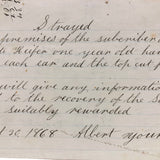 Strayed
premises of the subscriber
Heifer one year old har
each ear and the top cut
will give any informatio
to the recovery of the s
suitably rewarded
20 1868 Albert your